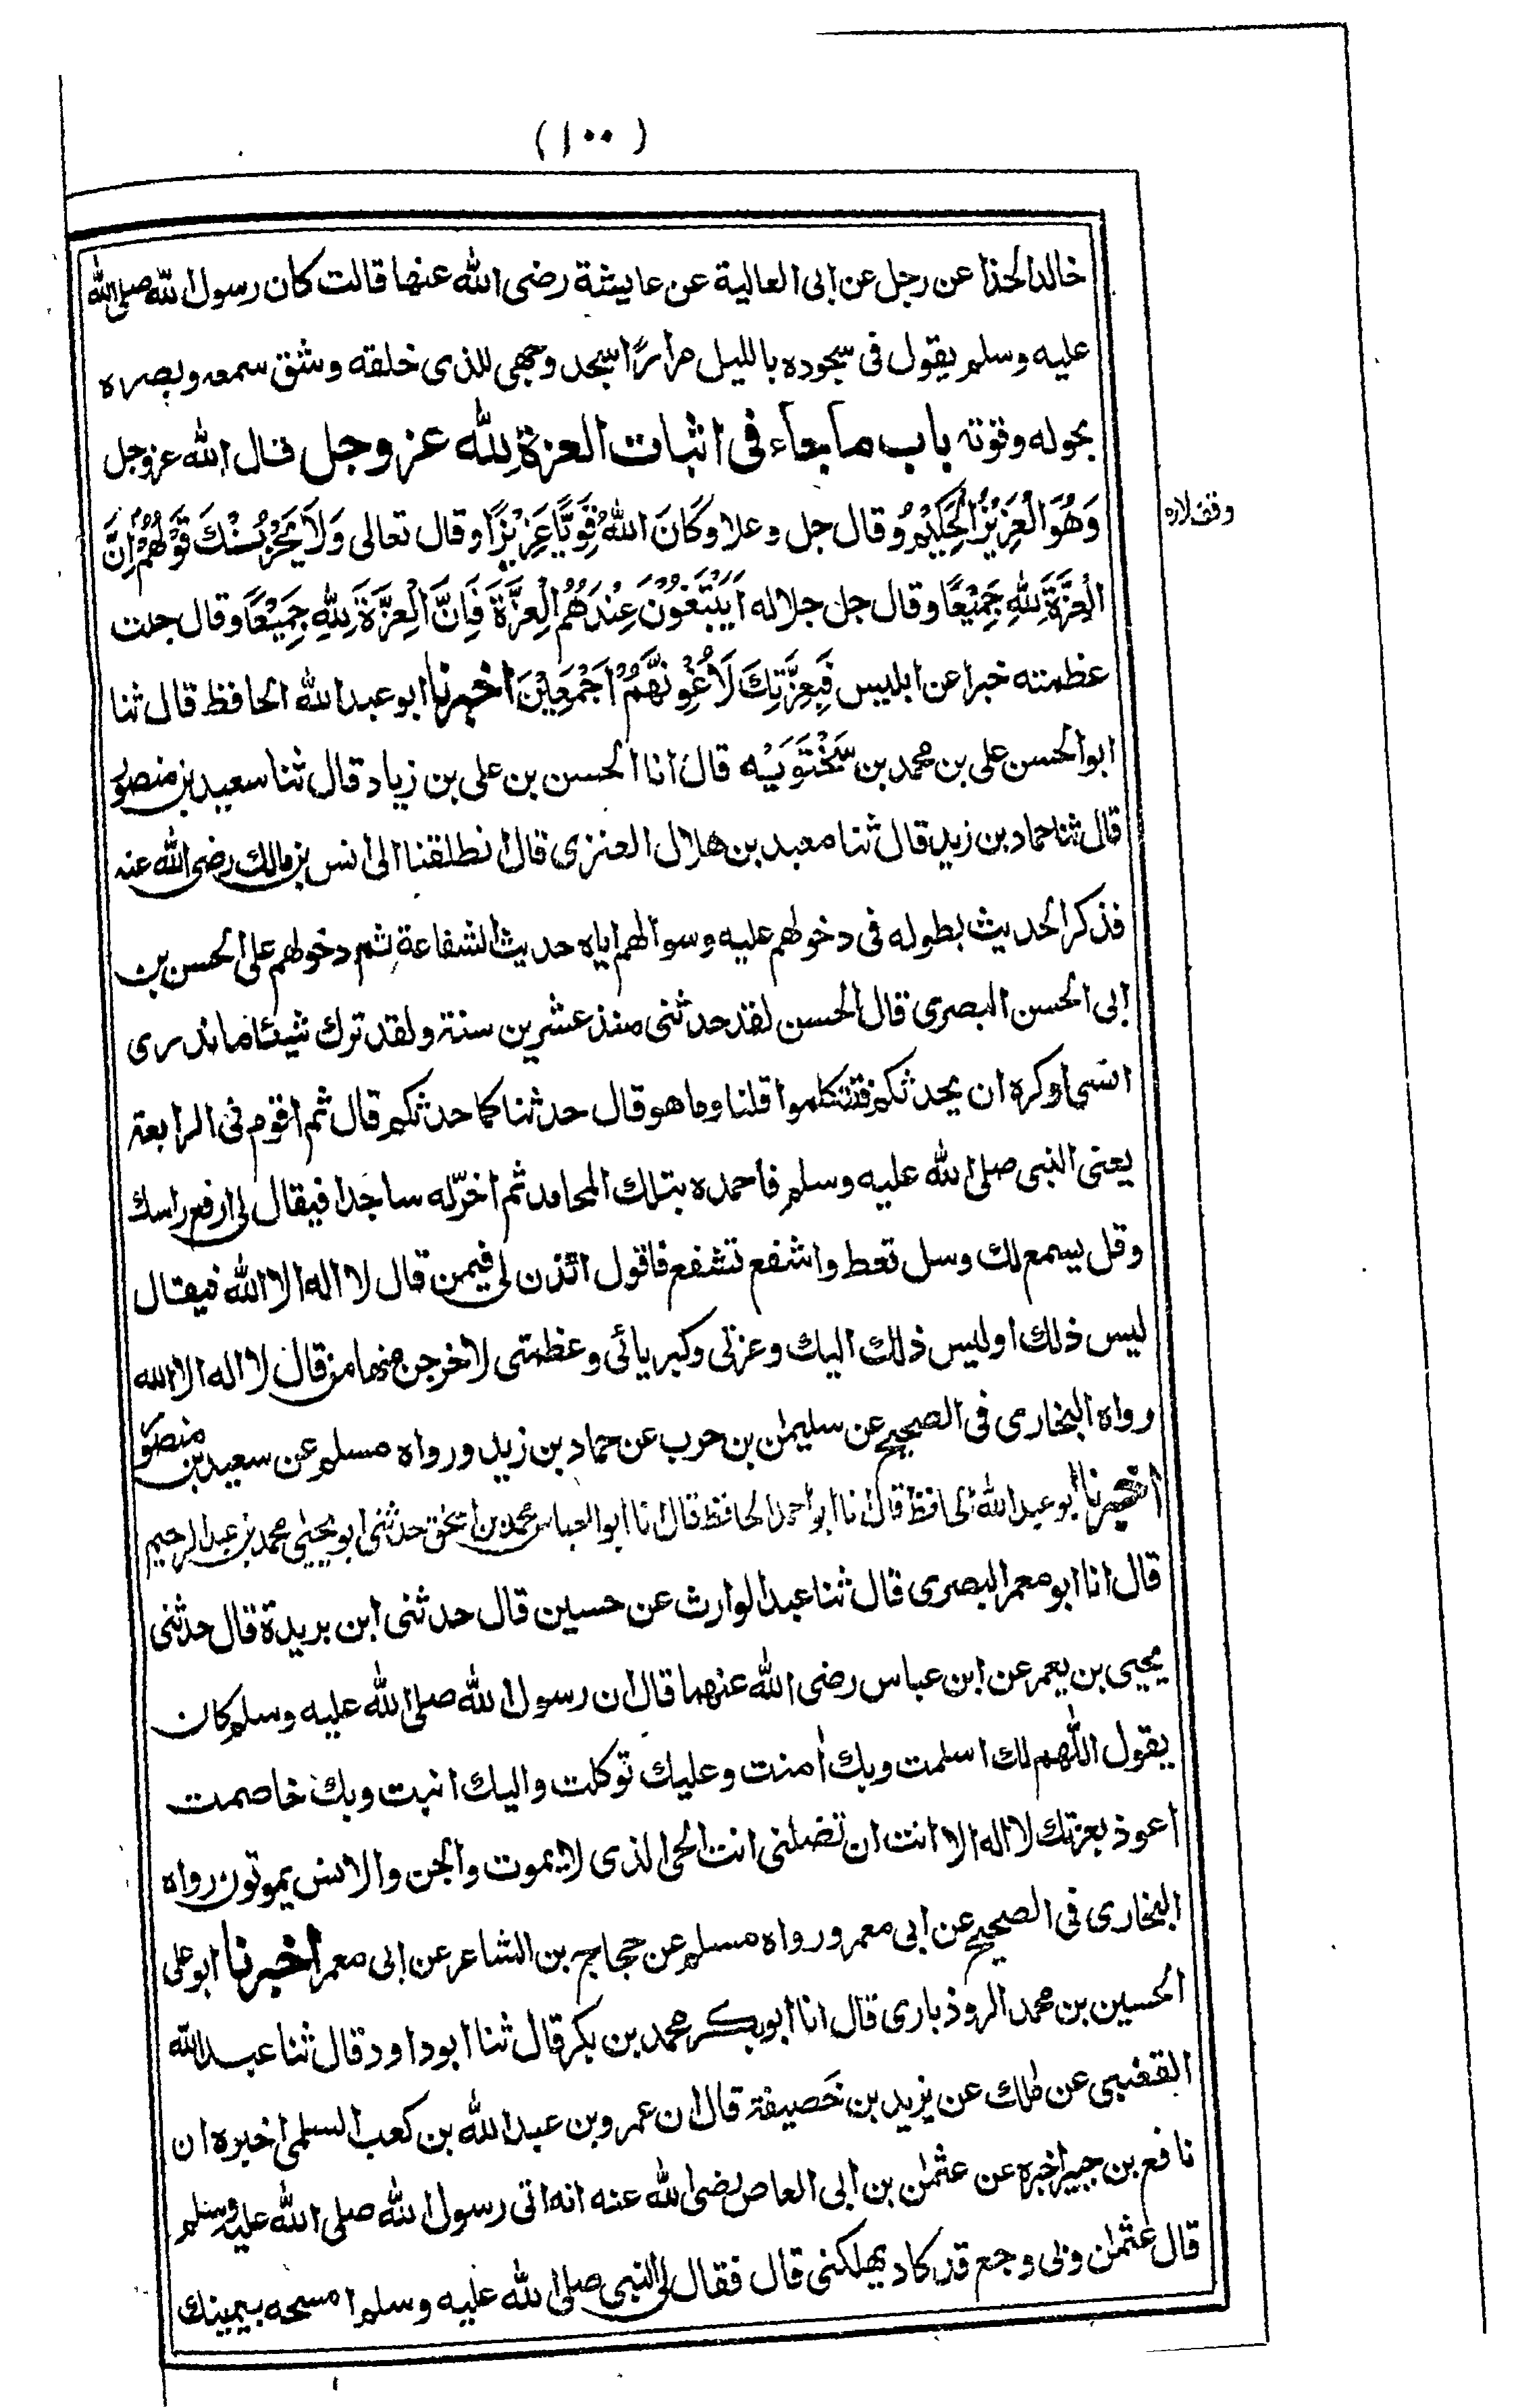 (١٠٠)
خالد الحذا عن رجل عن ابى العالية عن عايشة رضى الله عنها قالت كان رسول الله صلى الله
عليه وسلم يقول فى سجوده بالليل مرارًا سجد وجهى للذى خلقه وشق سمعه وبصره
بحوله وقوته باب ما جاء فى اثبات العزة لله عز وجل قال الله عز وجل
وَهُوَ الْعَزِيْزُ الْحَكِيْمُ وقال جل وعلا وَكَانَ اللهُ قَوِيًّا عَزِيْزًا وقال تعالى وَلَا يَحْزُنْكَ قَوْلُهُمْ اِنَّ
وقف لازم
الْعِزَّةَ لِلّٰهِ جَمِيْعًا وقال جل جلاله اَيَبْتَغُوْنَ عِنْدَهُمُ الْعِزَّةَ فَاِنَّ الْعِزَّةَ لِلّٰهِ جَمِيْعًا وقال جلت
عظمته خبرا عن ابليس فَبِعِزَّتِكَ لَاُغْوِيَنَّهُمْ اَجْمَعِيْنَ اخبرنا ابو عبد الله الحافظ قال ثنا
ابو الحسن على بن محمد بن سَخْتَوَيْه قال انا الحسن بن على بن زياد قال ثنا سعيد بن منصور
قال ثنا حماد بن زيد قال ثنا معبد بن هلال العنزى قال انطلقنا الى انس بن مالك رضى الله عنه
فذكر الحديث بطوله فى دخولهم عليه وسوالهم اياه حديث الشفاعة ثم دخولهم على الحسن بن
ابى الحسن البصرى قال الحسن لقد حدثنى منذ عشرين سنة ولقد ترك شيئا ما ندرى
انسى او كره ان يحدثكم فتتكلموا قلنا وما هو قال حدثنا كما حدثكم قال ثم اقوم فى الرابعة
يعنى النبى صلى الله عليه وسلم فاحمده بتلك المحامد ثم اخرّ له ساجدا فيقال لى ارفع راسك
وقل يسمع لك وسل تعط واشفع تشفع فاقول ائذن لى فيمن قال لا اله الا الله فيقال
ليس ذلك او ليس ذلك اليك وعزتى وكبريائى وعظمتى لاخرجن منها من قال لا اله الا الله
رواه البخارى فى الصحيح عن سليمٰن بن حرب عن حماد بن زيد ورواه مسلم عن سعيد بن منصور
اخبرنا ابو عبد الله الحافظ قال انا ابو احمد الحافظ قال انا ابو العباس محمد بن اسحٰق حدثنى ابو يحيى محمد بن عبد الرحيم
قال انا ابو معمر البصرى قال ثنا عبد الوارث عن حسين قال حدثنى ابن بريدة قال حدثنى
يحيى بن يعمر عن ابن عباس رضى الله عنهما قال ان رسول الله صلى الله عليه وسلم كان
يقول اللّٰهم لك اسلمت وبك اٰمنت وعليك توكلت واليك انبت وبك خاصمت
اعوذ بعزتك لا اله الا انت ان تضلنى انت الحى الذى لا يموت والجن والانس يموتون رواه
البخارى فى الصحيح عن ابى معمر ورواه مسلم عن حجاج بن الشاعر عن ابى معمر اخبرنا ابو على
الحسين بن محمد الروذبارى قال انا ابو بكر محمد بن بكر قال ثنا ابو داود قال ثنا عبد الله
القعنبى عن مٰلك عن يزيد بن خَصيفة قال ان عمرو بن عبد الله بن كعب السلمى اخبره ان
نافع بن جبير اخبره عن عثمٰن بن ابى العاص رضى الله عنه انه اتى رسول الله صلى الله عليه وسلم
قال عثمٰن وبى وجع قد كاد يهلكنى قال فقال لى النبى صلى الله عليه وسلم امسحه بيمينك